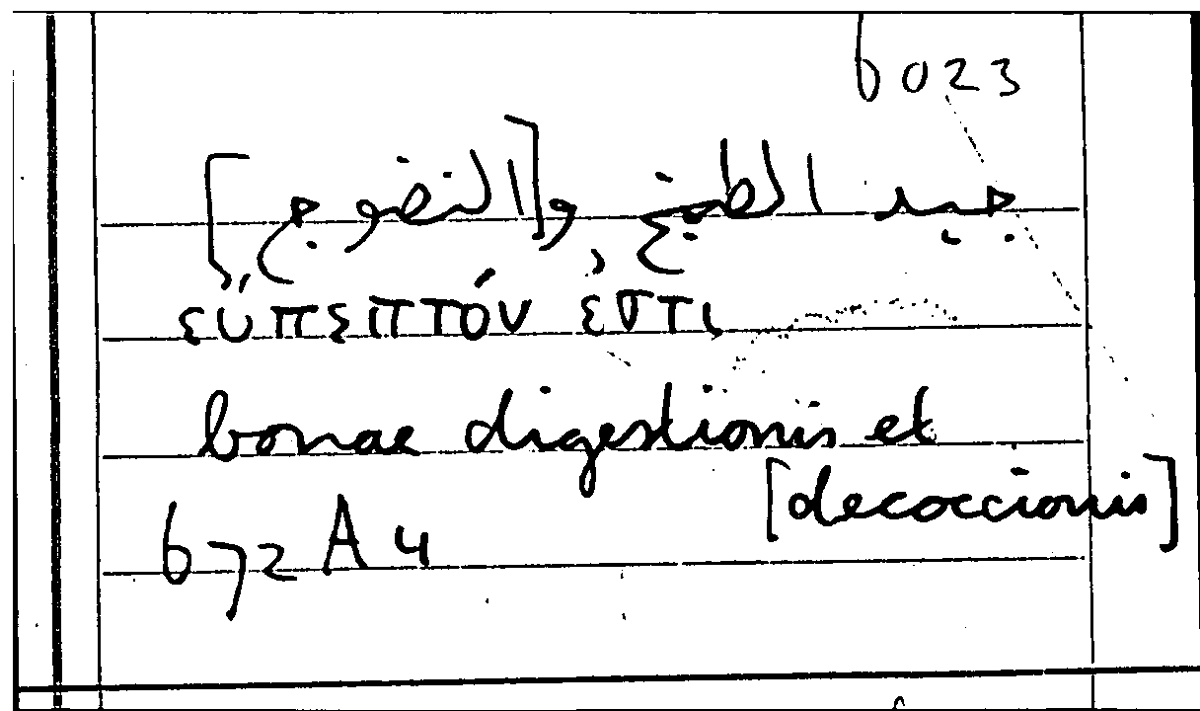 6023
جيد الطبخ و[النضوج]
εὔπεπτόν ἐστι
bonae digestionis et
[decoccionis]
672 A 4